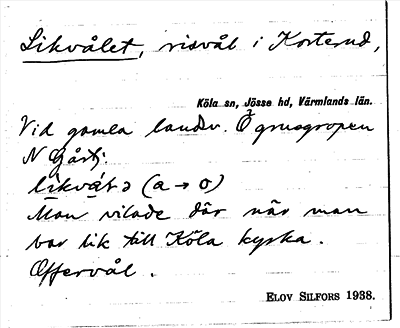 Likvålet, risvål i Korterud,
Köla sn, Jösse hd, Värmlands län.
Vid gamla landsv. Ö grusgropen
N Gårdsj.
(a → o)
Man vilade där när man
bar lik till Köla kyrka.
Offervål.
ELOV SILFORS 1938.